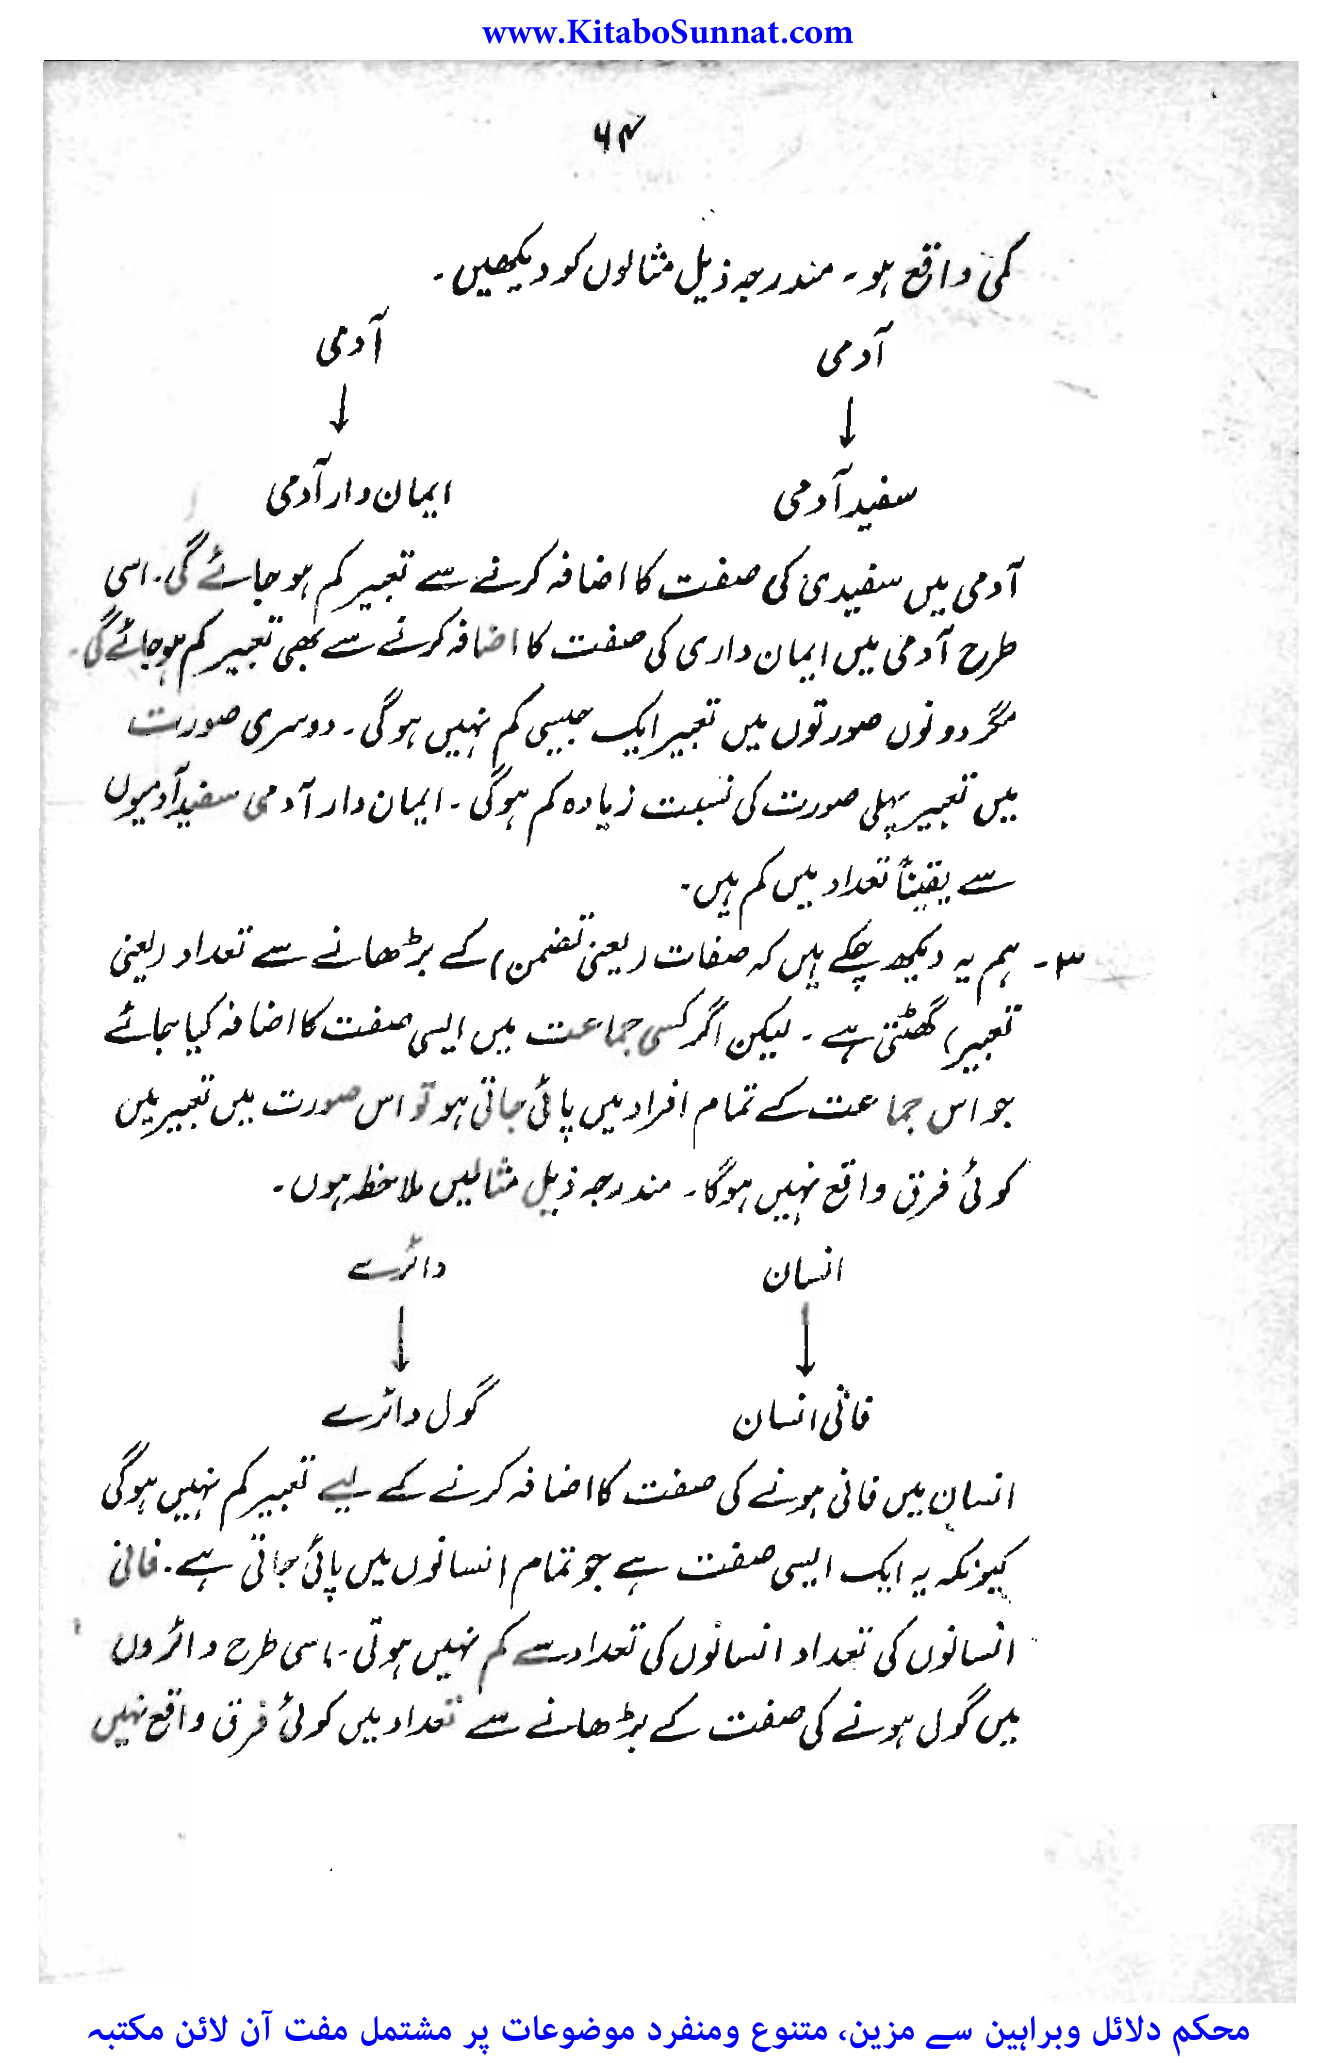 www.KitaboSunnat.com
۶۴
کمی واقع ہو۔ مندرجہ ذیل مثالوں کو دیکھیں۔
آدمی آدمی
↓ ↓
سفید آدمی ایمان دار آدمی
آدمی میں سفیدی کی صفت کا اضافہ کرنے سے تعبیر کم ہو جائے گی۔ اسی
طرح آدمی میں ایمان داری کی صفت کا اضافہ کرنے سے بھی تعبیر کم ہو جائے گی۔
مگر دونوں صورتوں میں تعبیر ایک جیسی کم نہیں ہوگی۔ دوسری صورت
میں تعبیر پہلی صورت کی نسبت زیادہ کم ہوگی۔ ایمان دار آدمی سفید آدمیوں
سے یقیناً تعداد میں کم ہیں۔
۳۔ ہم یہ دیکھ چکے ہیں کہ صفات (یعنی تضمن) کے بڑھانے سے تعداد (یعنی
تعبیر) گھٹتی ہے۔ لیکن اگر کسی جماعت میں ایسی صفت کا اضافہ کیا جائے
جو اس جماعت کے تمام افراد میں پائی جاتی ہو تو اس صورت میں تعبیر میں
کوئی فرق واقع نہیں ہوگا۔ مندرجہ ذیل مثالیں ملاحظہ ہوں۔
انسان دائرے
↓ ↓
فانی انسان گول دائرے
انسان میں فانی ہونے کی صفت کا اضافہ کرنے کے لیے تعبیر کم نہیں ہوگی
کیونکہ یہ ایک ایسی صفت ہے جو تمام انسانوں میں پائی جاتی ہے۔ فانی
انسانوں کی تعداد انسانوں کی تعداد سے کم نہیں ہوتی۔ اسی طرح دائروں
میں گول ہونے کی صفت کے بڑھانے سے تعداد میں کوئی فرق واقع نہیں
محکم دلائل وبراہین سے مزین، متنوع ومنفرد موضوعات پر مشتمل مفت آن لائن مکتبہ